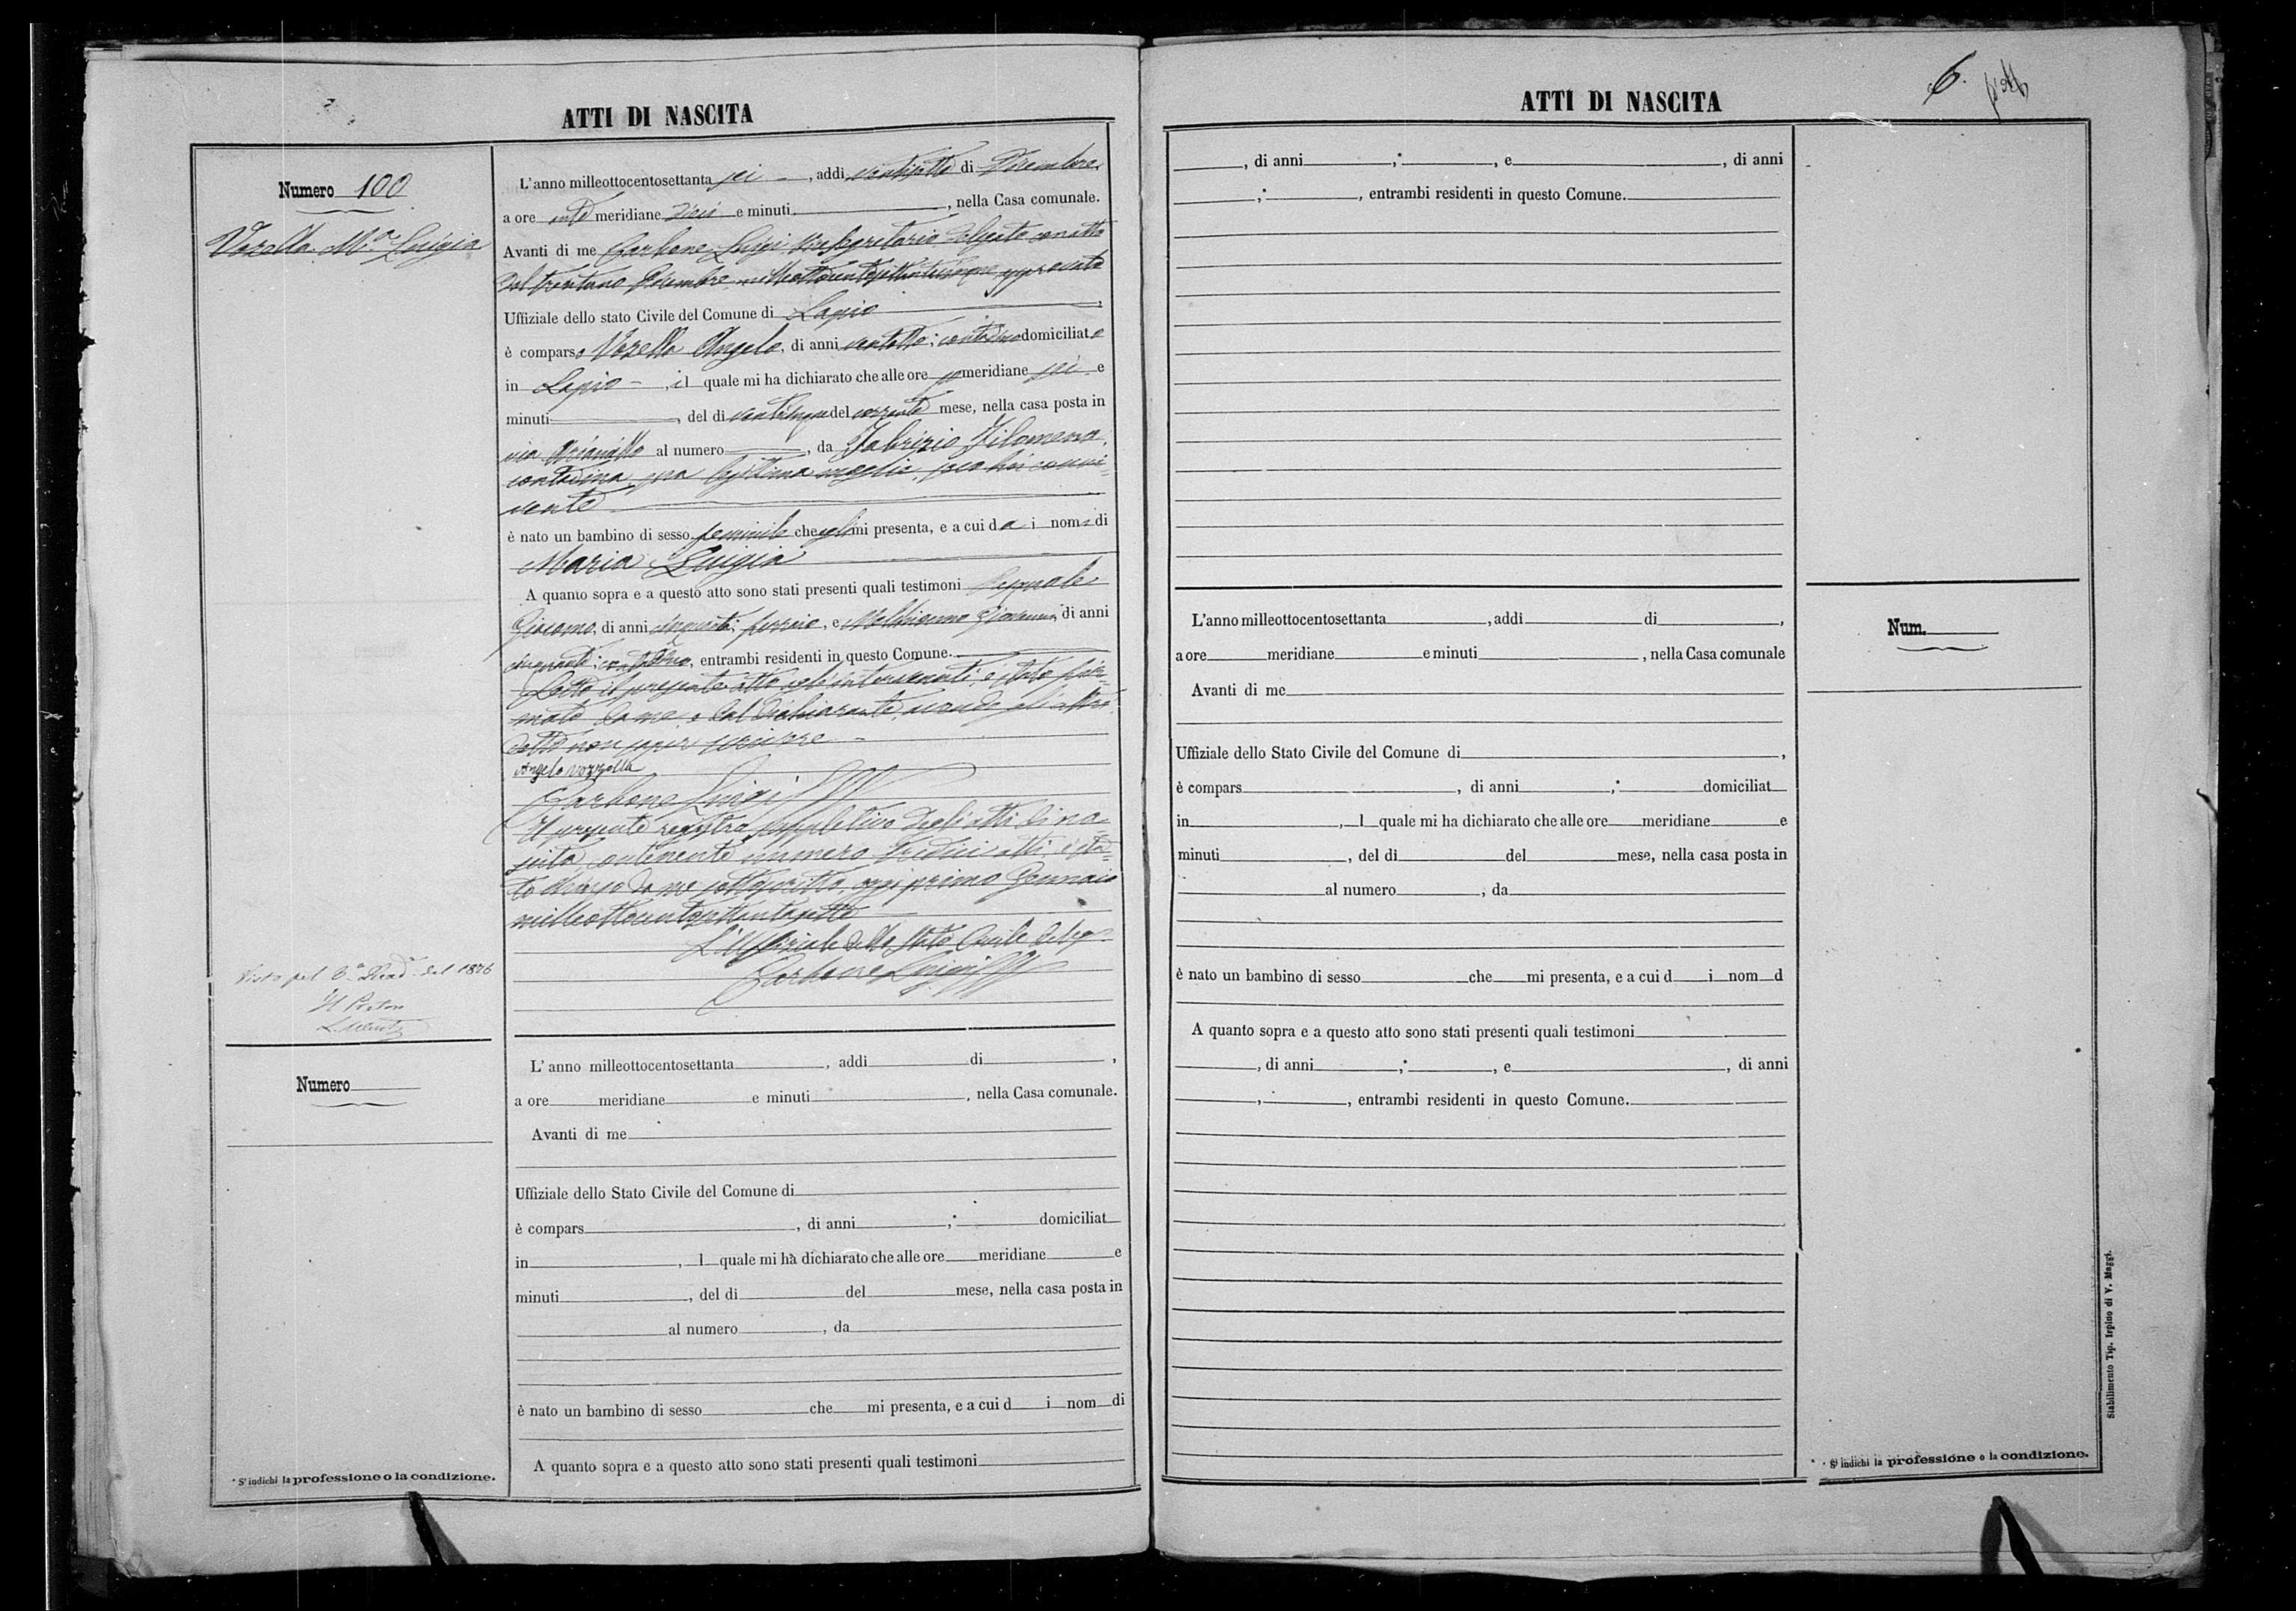 ATTI DI NASCITA
Numero 100
Vozella M.a Luigia
L'anno milleottocentosettanta sei, addì ventisette di Dicembre,
a ore ante meridiane dieci e minuti, nella Casa comunale.
Avanti di me Carbone Luigi Vice Segretario delegato con atto
del trentuno Dicembre milleottocentosettantacinque approvato
Uffiziale dello stato Civile del Comune di Lapio,
è comparso Vozella Angelo, di anni ventotto; contadino domiciliato
in Lapio, il quale mi ha dichiarato che alle ore pomeridiane sei e
minuti, del dì venticinque del corrente mese, nella casa posta in
via al numero, da Fabrizio Filomena,
contadina sua legittima moglie, seco lui convi-
vente
è nato un bambino di sesso femminile che egli mi presenta, e a cui da i nomi di
Maria Luigia
A quanto sopra e a questo atto sono stati presenti quali testimoni
Giacomo, di anni cinquanta; ferraio, e Giovanni, di anni
cinquanta; contadino, entrambi residenti in questo Comune.
Letto il presente atto agli intervenuti, è stato fir-
mato da me e dal dichiarante, avendo gli altri
detto non saper scrivere
Angelo vozzella
Carbone Luigi
Il presente registro suppletivo degli atti di na-
scita, contenente numero tredici atti è sta-
to chiuso da me sottoscritto, oggi primo Gennaio
milleottocentosettantasette
L'Uffiziale dello Stato Civile deleg.
Carbone Luigi
Visto pel 3.o Quad. del 1876
Il Pretore
Numero
L'anno milleottocentosettanta, addì di,
a ore meridiane e minuti, nella Casa comunale.
Avanti di me
Uffiziale dello Stato Civile del Comune di
è compars, di anni; domiciliat
in, l quale mi hà dichiarato che alle ore meridiane e
minuti, del dì del mese, nella casa posta in
al numero, da
è nato un bambino di sesso che mi presenta, e a cui d i nom di
A quanto sopra e a questo atto sono stati presenti quali testimoni
* S'indichi la professione o la condizione.
ATTI DI NASCITA
6.
, di anni;, e, di anni
;, entrambi residenti in questo Comune.
L'anno milleottocentosettanta, addì di,
a ore meridiane e minuti, nella Casa comunale
Avanti di me
Uffiziale dello Stato Civile del Comune di,
è compars, di anni; domiciliat
in, l quale mi ha dichiarato che alle ore meridiane e
minuti, del dì del mese, nella casa posta in
al numero, da
è nato un bambino di sesso che mi presenta, e a cui d i nom d
A quanto sopra e a questo atto sono stati presenti quali testimoni
, di anni;, e, di anni
;, entrambi residenti in questo Comune.
Num.
* S'indichi la professione o la condizione.
Stabilimento Tip. Irpino di V. Maggi.